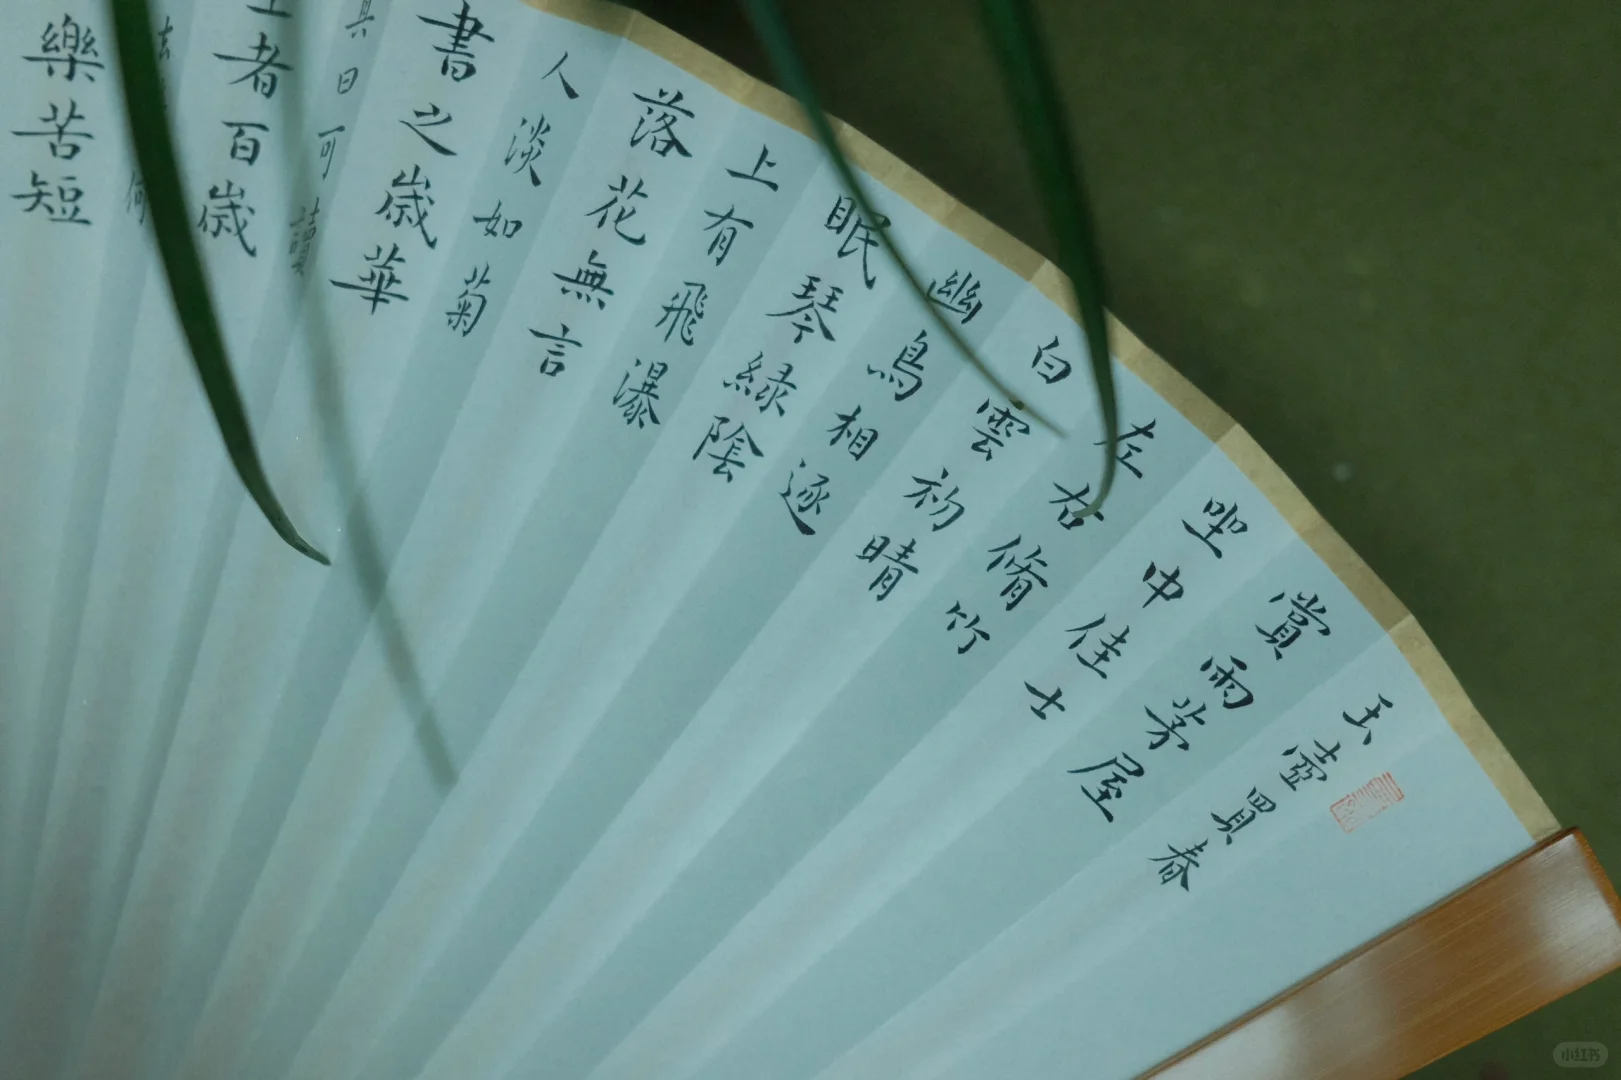 玉壺買春
賞雨茅屋
坐中佳士
左右脩竹
白雲初晴
幽鳥相逐
眠琴緑陰
上有飛瀑
落花無言
人淡如菊
書之歳華
其曰可讀
者百歳
去何
樂苦短
小红书